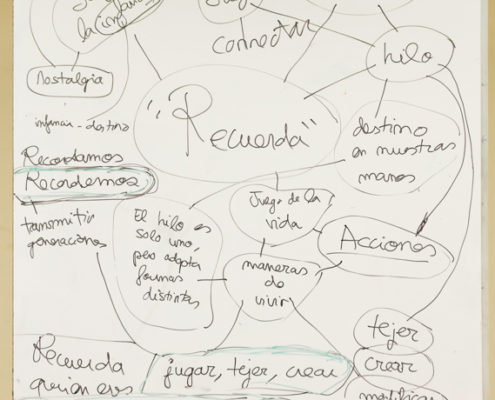 la infancia
Juego
conectar
hilo
Nostalgia
infancia - destino
"Recuerda"
destino
en nuestras
manos
Recordamos
Recordemos
transmitir
generaciones
El hilo es
solo uno,
pero adopta
formas
distintas
Juego de la
vida
Acciones
maneras
de
vivir
tejer
crear
modificar
Recuerda
quien eres
jugar, tejer, crear